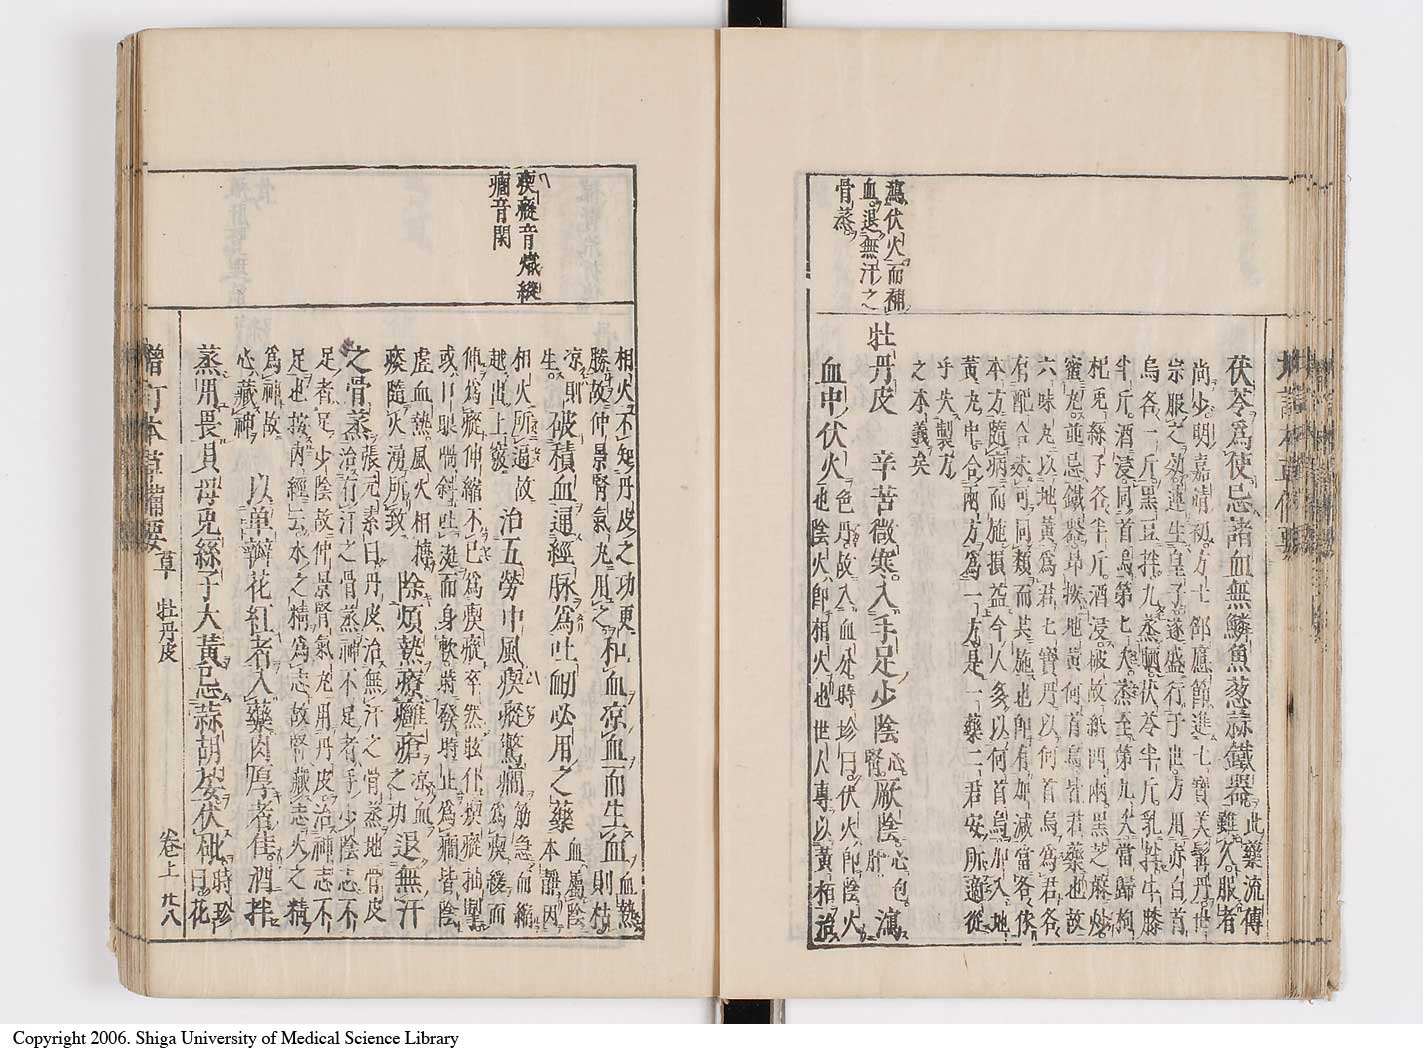 瀉伏火而補
血退無汗之
骨蒸
茯苓爲使忌諸血無鱗魚葱蒜鐵器此藥流傳雖久服者
尚少明嘉靖初方士邵應節進七寶美髯丹世
宗服之効連生皇子遂盛行于世方用赤白首
烏各一斤黑豆拌九蒸晒茯苓半斤乳拌牛膝
半斤酒浸同首烏第七次蒸至第九次當歸枸
杞兎絲子各半斤酒浸破故紙四兩黑芝蔴炒
蜜丸並忌鐵器昂按地黃何首烏皆君藥也故
六味丸以地黃爲君七寶丹以何首烏爲君各
有配合未可同類而共施也即有加減當各依
本方隨病而施損益今人多以何首烏加入地
黃丸中合兩方爲一方是一藥二君安所適從
乎失製方
之本義矣
牡丹皮 辛苦微寒入手足少陰心腎厥陰心包肝瀉
血中伏火色丹故入血分時珍曰伏火即陰火也陰火即相火也世人專以黃栢治
瘈瘲音熾縱
癎音閑
相火不知丹皮之功更勝故仲景腎氣丸用之和血凉血而生血血熱則枯
凉則生破積血通經脉爲吐衄必用之藥血屬陰本靜因
相火所逼故越出上竅治五勞中風瘈瘲驚癎筋急而縮爲瘈緩而
伸爲瘲伸縮不已爲瘈瘲卒然眩仆瘈瘲抽掣
或口眼喎斜吐涎而身軟時發時止爲癎皆陰
虛血熱風火相搏痰隨火湧所致除煩熱療癰瘡凉血之功退無汗
之骨蒸張元素曰丹皮治無汗之骨蒸地骨皮治有汗之骨蒸神不足者手少陰志不
足者足少陰故仲景腎氣丸用丹皮治神志不
足也按內經云水之精爲志故腎藏志火之精
爲神故心藏神以單瓣花紅者入藥肉厚者佳酒拌
蒸用畏貝母兎絲子大黃忌蒜胡荽伏砒時珍曰花
增訂本草備要 草 牡丹皮 卷上 廿八